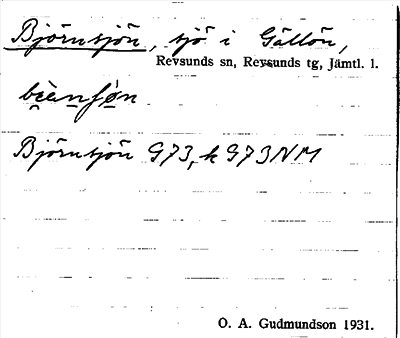 Björnsjön, sjö i Gällön,
Revsunds sn, Revsunds tg, Jämtl. l.
Björnsjön G73, k G73NM
O. A. Gudmundson 1931.